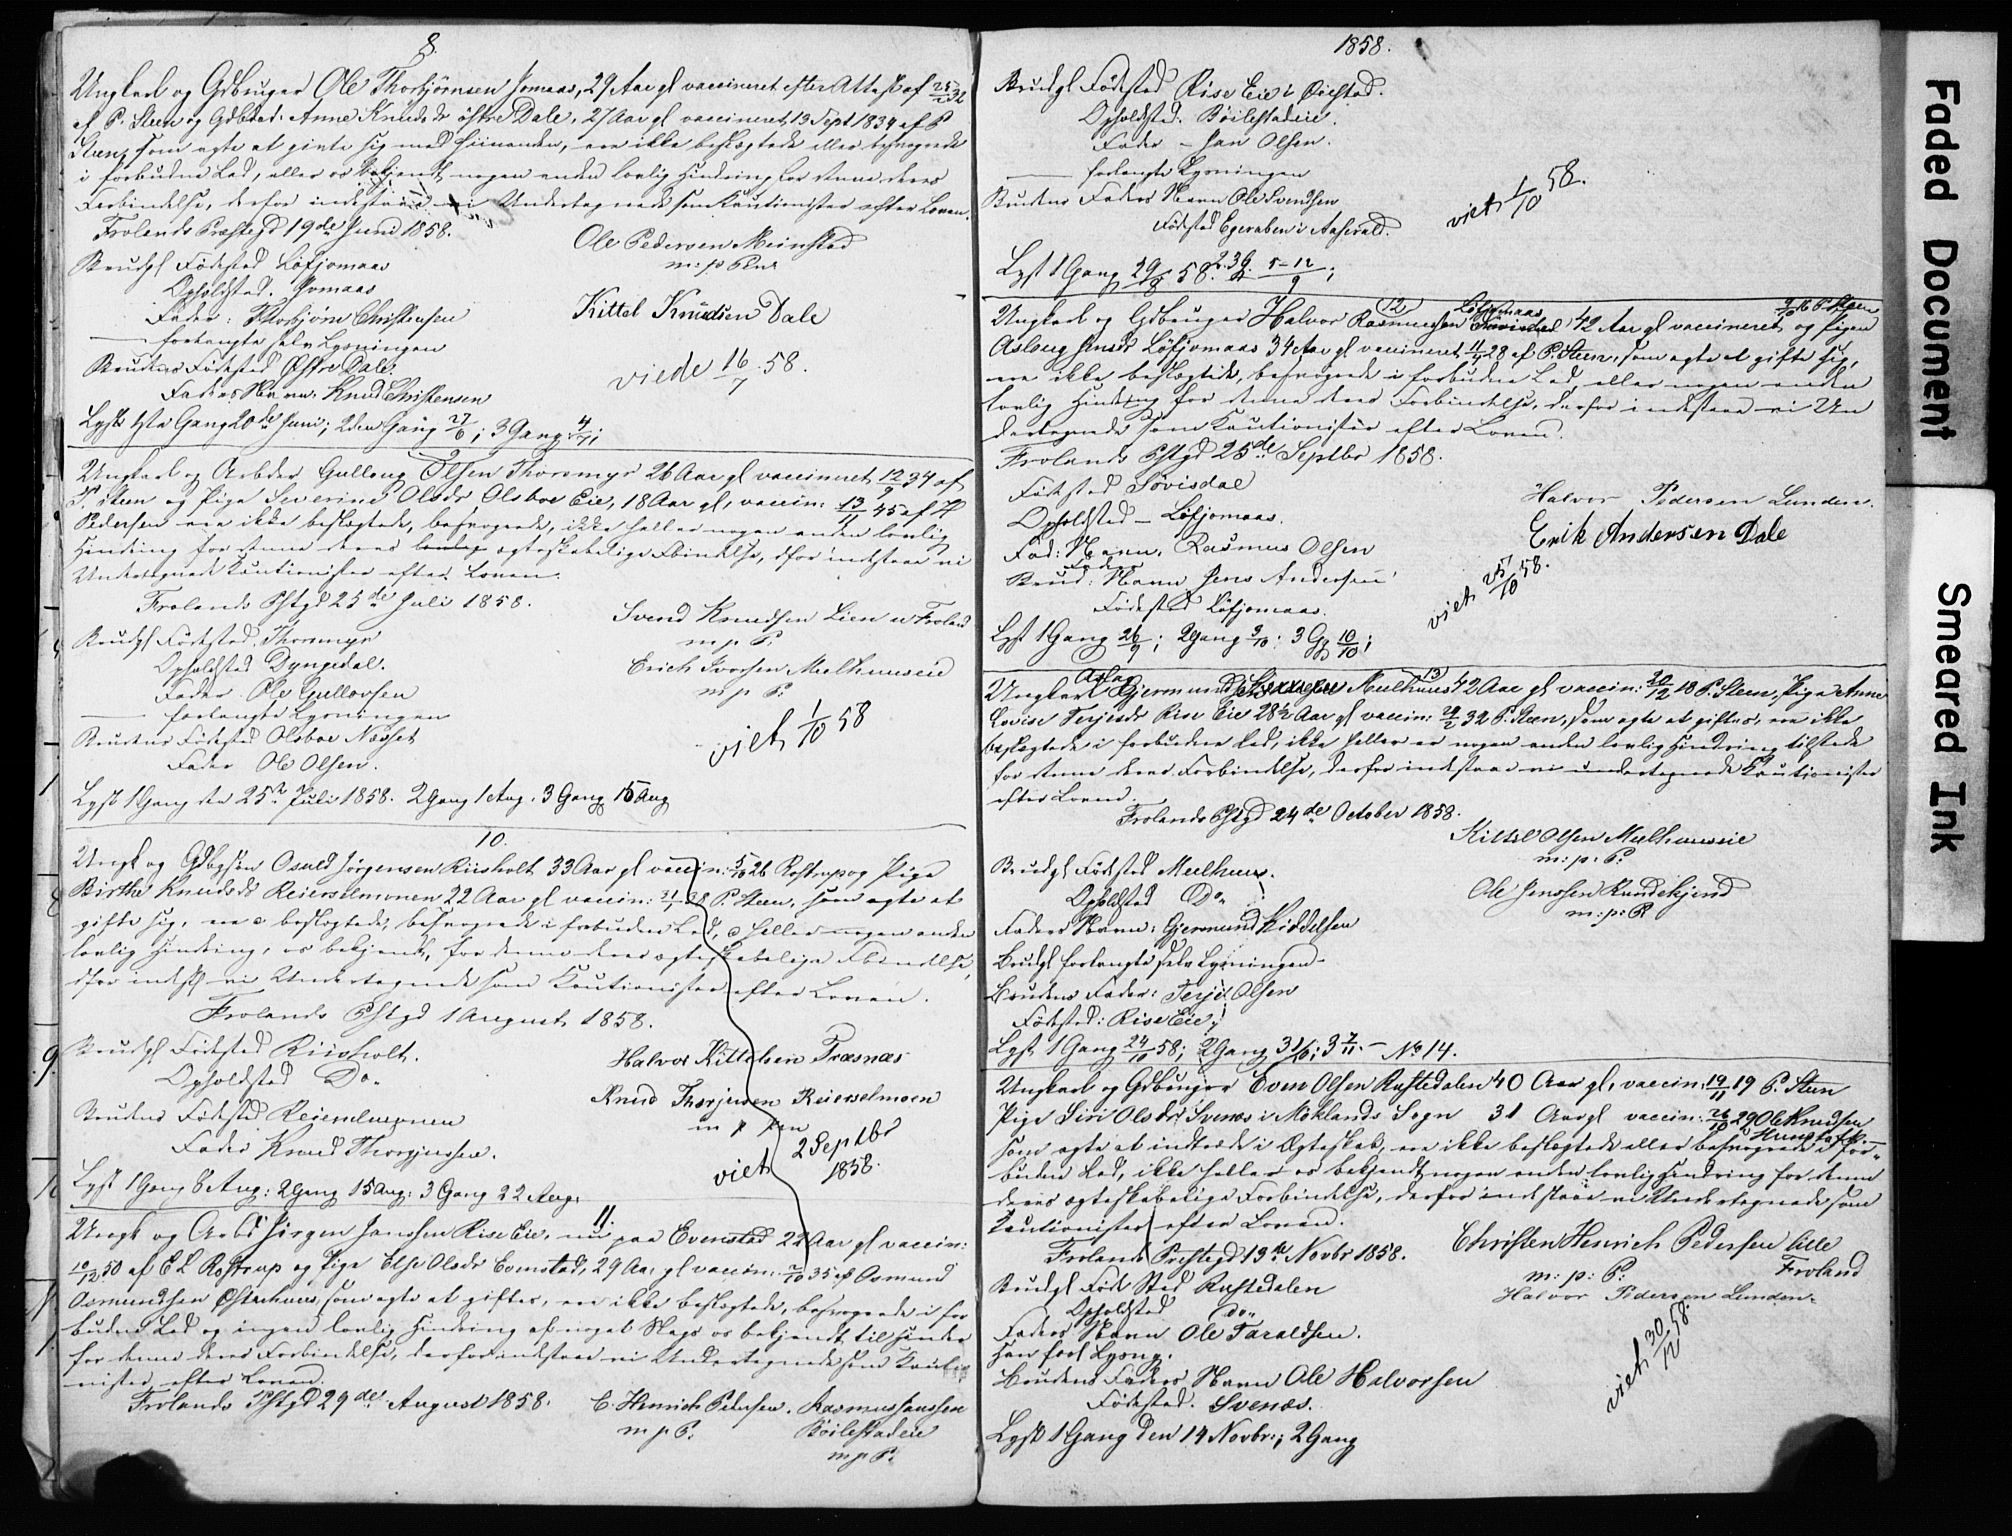 8.
Ungkarl og Gdbruger Ole Thorbjørnsen Jomaas, 29 Aar gl vaccineret efter Attest af 25/2 32
af P. Steen og Gdbdat. Anne Knudsdr østre Dale, 27 Aar gl vaccineret 13 Sept 1834 af P
Steen, som agte at givte sig med hinanden, ere ikke beslægtede eller besvogrede
i forbudne Led, eller os bekjendt nogen anden lovlig Hindring for denne deres
Forbindelse, derfor indestaae vi Undertegnede som Kautionister efter Loven.
Frolands Præstegd 19de Juni 1858.
Ole Pedersen Meinstad
m: p Pen
Brudgl Fødested Løfjomaas
Opholdsted. Jomaas
Kittel Knudsen Dale
Fader: Thorbjørn Christensen
forlangte selv Lysningen
Brudens Fødested Østre Dale.
viede 16/7 58.
Faders Navn: Knud Christensen
Lyst 1ste Gang 20de Juni; 2den Gang 27/6; 3 Gang 4/7;
9
Ungkarl og Arbeider Gullov Olsen Thorsmyr 26 Aar gl vaccineret 12/9 34 af
P. Steen og Pige Severine Olsdr Olsboe Eie, 18 Aar gl, vaccin: 13/11 45 af H
Pedersen ere ikke beslægtede, besvogrede, ikke heller nogen anden lovlig
Hindring for denne deres ægteskabelige Fbindelse, dfor indstaae vi
Undertegnede Kautionister efter Loven.
Frolands Pstgd 25de Juli 1858.
Svend Knudsen Lien i Froland
m. p. P.
Brudgl Fødested. Thorsmyr
Opholdsted Dyngedal.
Erich Iversen Mulhuuseie
m. p. P.
Fader Ole Gullovsen
forlangte Lysningen
Brudens Fødested Olsboe Næsset
viet 1/10 58
Fader Ole Olsen.
Lyst 1 Gang den 25de Juli 1858. 2 Gang 1 Aug. 3 Gang 15 Aug
10.
Ungk og Gdbgsøn Osuld Jørgensen Riisholt 33 Aar gl vaccin: 5/10 26 Rostrup og Pige
Birthe Knudsdr Reierselmonen 22 Aar gl vaccin: 31/1 38 P. Steen, som agte at
gifte sig, ere e beslægtede, besvogrede i forbudne Led, e heller nogen anden
lovlig Hindring, os bekjendt, for denne deres ægteskabelige Fbindelse,
dfor indest vi Undertegnede som Kautionister efter Loven.
Frolands Pstgd 1 August 1858.
Brudgl Fødested Riisholt.
Halvor Kittelsen Træsnæs
Opholdsted Do.
Knud Thorjersen Reierselmoen
m p Pen
Brudens Fødested Reierselmonen
Fader Knud Thorgjersen.
viet 2 Septbr
1858.
Lyst 1 Gang 8 Aug: 2 Gang 15 Aug: 3 Gang 22 Aug:
11.
Ungk og Arbd Jørgen Janssen Rise Eie, nu paa Evenstad 22 Aar gl vaccin:
10/12 50 af E L Rostrup og Pige Else Olsdr Evenstad, 29 Aar gl vaccin: 2/10 35 af Osmund
Osmundsen Østerhuus, som agte at giftes, ere ikke beslægtede, besvogrede i for
budne Led og ingen lovlig Hindring af noget Slags os bekjendt til Hinder
for denne deres Forbindelse, derfor indestaae vi Undertegnede som Kautio
nister efter Loven.
Frolands Pstgd 29de August 1858.
C. Henrich Pedersen.
m p P.
Rasmus Janssen
Bøilestadeie
m p P.
1858.
Brudgl Fødested Rise Eie i Øiestad.
Opholdsted. Bøilestadeie.
Fader — Jan Olsen.
forlangte Lysningen
Brudens Faders Navn Ole Svendsen
Fødested Egeraben i Aaserald.
viet 1/10 58.
Lyst 1 Gang 29/8 58. 2. 3 G. 5–12/9;
12
Ungkarl og Gdbruger Halvor Rasmussen Løfjomaas 42 Aar gl vaccineret 9/10 16 P. Steen og Pigen
Aslaug Jensdr Løfjomaas 34 Aar gl vaccineret 11/9 28 af P. Steen, som agte at gifte sig,
ere ikke beslægtede, besvogrede i forbudne Led, eller nogen anden
lovlig Hindring for denne deres Forbindelse, derfor indestaae vi Un
dertegnede som Kautionister efter Loven.
Frolands Pstgd 25de Septbr 1858.
Fødested Søvisdal
Halvor Pedersen Lunden.
Opholdsted — Løfjomaas.
Erik Andersen Dale
Fad: Navn, Rasmus Olsen
Brud: Faders Navn Jens Andersen
viet 25/10 58.
Fødested Løfjomaas.
Lyst 1 Gang 26/9; 2 Gang 3/10: 3 Gg 10/10;
13
Ungkarl Aslag Gjermundsen Mulhuus 42 Aar gl vaccin: 20/12 18 P. Steen, Pige Anne
Lovise Terjesdr Rise Eie 28½ Aar gl vaccin: 29/2 32 P. Steen, som agte at giftes, ere ikke
beslægtede i forbudne Led, ikke heller er nogen anden lovlig Hindring tilstede
for denne deres Forbindelse, derfor indestaae vi undertegnede Kautionister
efter Loven.
Frolands Pstgd 24de October 1858.
Kittel Olsen Mulhuuseie
m: p: P.
Brudgl Fødested Mulhuus.
Opholdsted Do.
Ole Jenssen Rundekjend
m: p: P
Faders Navn: Gjermund Kiddelsen
Brudgl forlangte selv Lysningen.
Brudens Fader: Terje Olsen
Fødested: Rise Eie;
Lyst 1 Gang 24/10 58; 2 Gang 31/10; 3 7/11. — No 14.
Ungkarl og Gdbruger Even Olsen Rustedalen 40 Aar gl, vaccin: 19/11 19 P. Steen
Pige Siri Olsdr Svenæs i Möklands Sogn 31 Aar gl vaccin: 26/10 29 Ole Knudsen
som agte at indtræde i Ægteskab, ere ikke beslægtede eller besvogrede i for-
budne Led, ikke heller os bekjendt nogen anden lovlig Hindring for denne
deres ægteskabelige Forbindelse, derfor indestaae vi Undertegnede som
Kautionister efter Loven.
Frolands Præstegd 13de Novbr 1858.
Christen Henrich Pedersen Lille
Froland
m: p: P.
Brudgl Fød Sted Rustedalen
Halvor Pedersen Lunden.
Opholdsted Do.
Faders Navn Ole Taraldsen.
Han forl Lysng.
viet 30/12 58.
Brudens Faders Navn Ole Halvorsen
Fødested. Svenæs.
Lyst 1 Gang den 14 Novbr:, 2 Gang
Faded Document
Smeared Ink